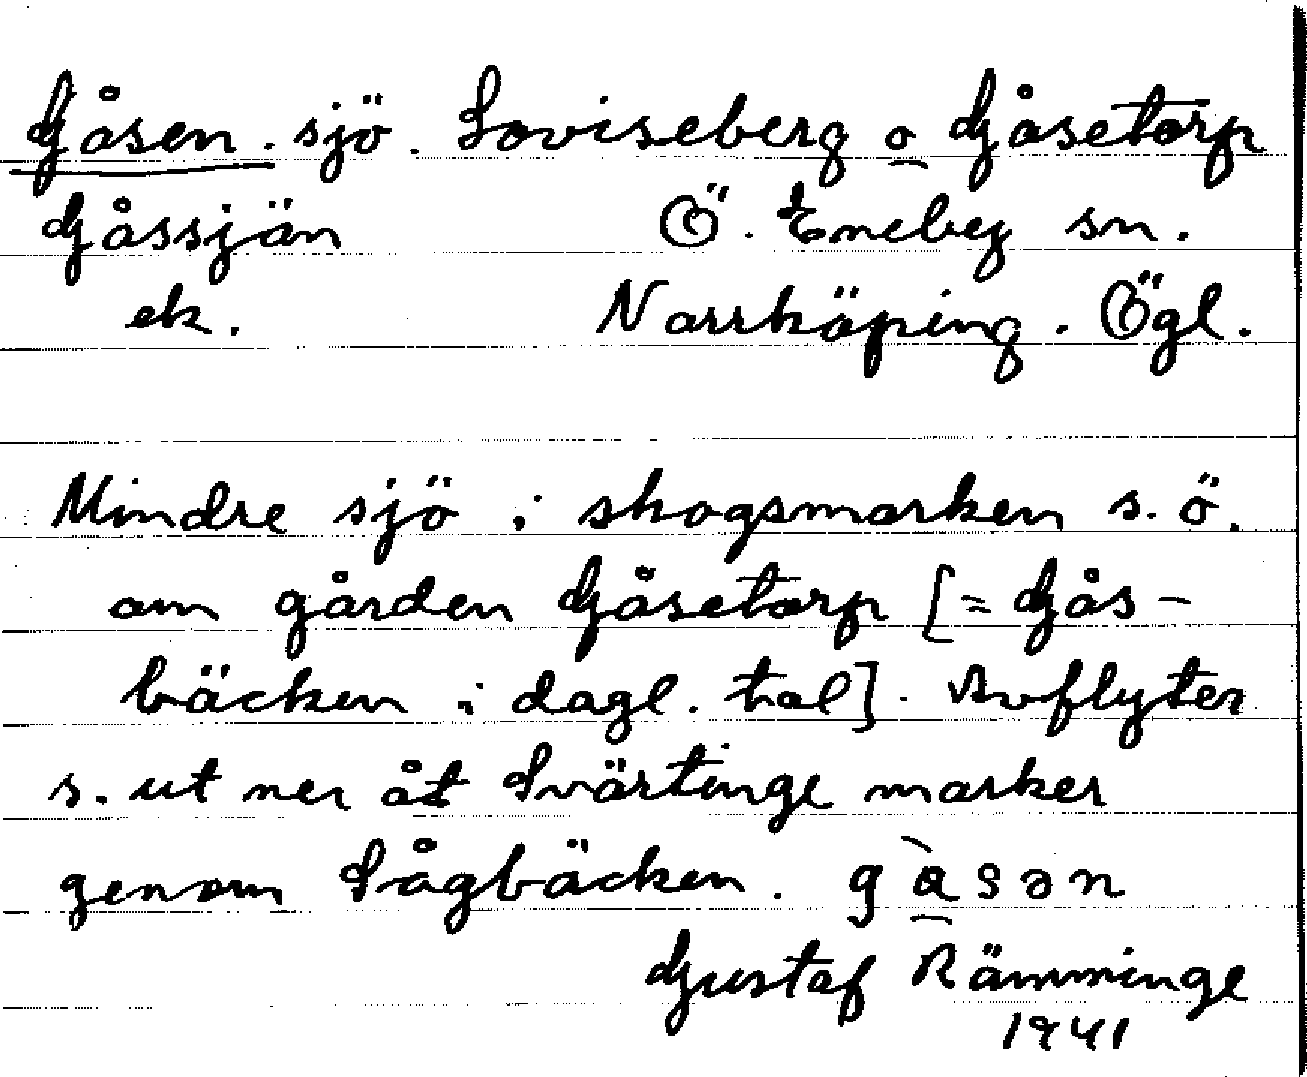 Gåsen. sjö. Loviseberg o Gåsetorp
Gåssjön Ö. Eneby sn.
ek. Norrköping. Ögl.
Mindre sjö i skogsmarken s.ö.
om gården Gåsetorp [= Gås-
bäcken i dagl. tal]. Avflyter
s. ut ner åt Svärtinge marker
genom Sågbäcken.
Gustaf Rämminge
1941